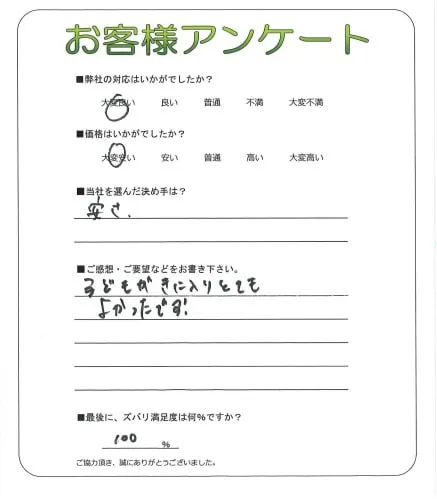 お客様アンケート
■弊社の対応はいかがでしたか？
大変良い 良い 普通 不満 大変不満
■価格はいかがでしたか？
大変安い 安い 普通 高い 大変高い
■当社を選んだ決め手は？
安さ、
■ご感想・ご要望などをお書き下さい。
子どもがきに入りとても
よかったです!
■最後に、ズバリ満足度は何％ですか？
100 ％
ご協力頂き、誠にありがとうございました。